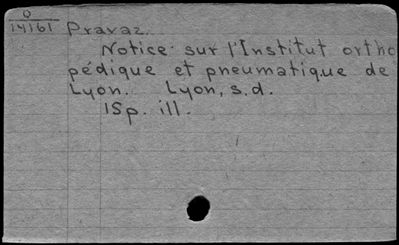 Q
14161 Pravaz.
Notice sur l'Institut ortho
pédique et pneumatique de
Lyon. Lyon, s.d.
15p. ill.